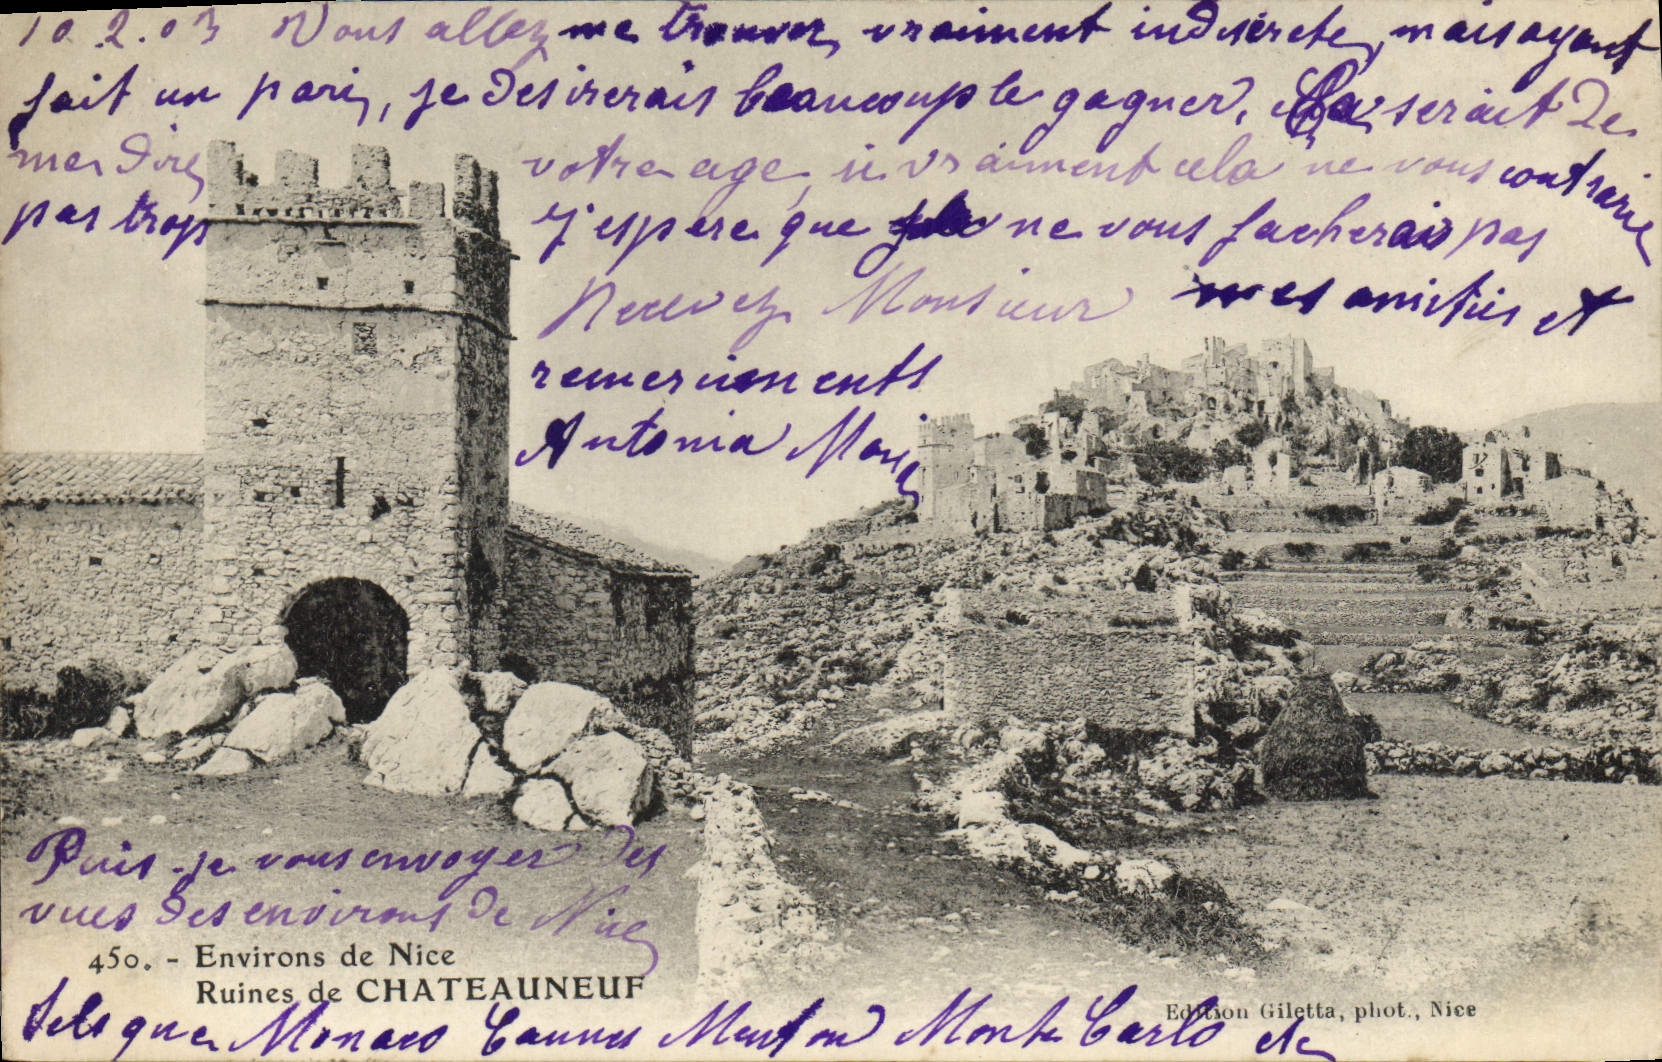 10.2.03 Vous allez me trouver vraiment indiscrete, mais ayant
fait un pari, je desirerais beaucoup le gagner. Ça serait de
me dire votre age, si vraiment cela ne vous contrarie
pas trop J'espere que ne vous facherais pas
Recevez Monsieur mes amitiés et
remerciements
Antonia
Puis-je vous envoyer des
vues des environs de Nice
450. - Environs de Nice
Ruines de CHATEAUNEUF
Edition Giletta, phot., Nice
tels que Monaco Cannes Menton Monte Carlo etc